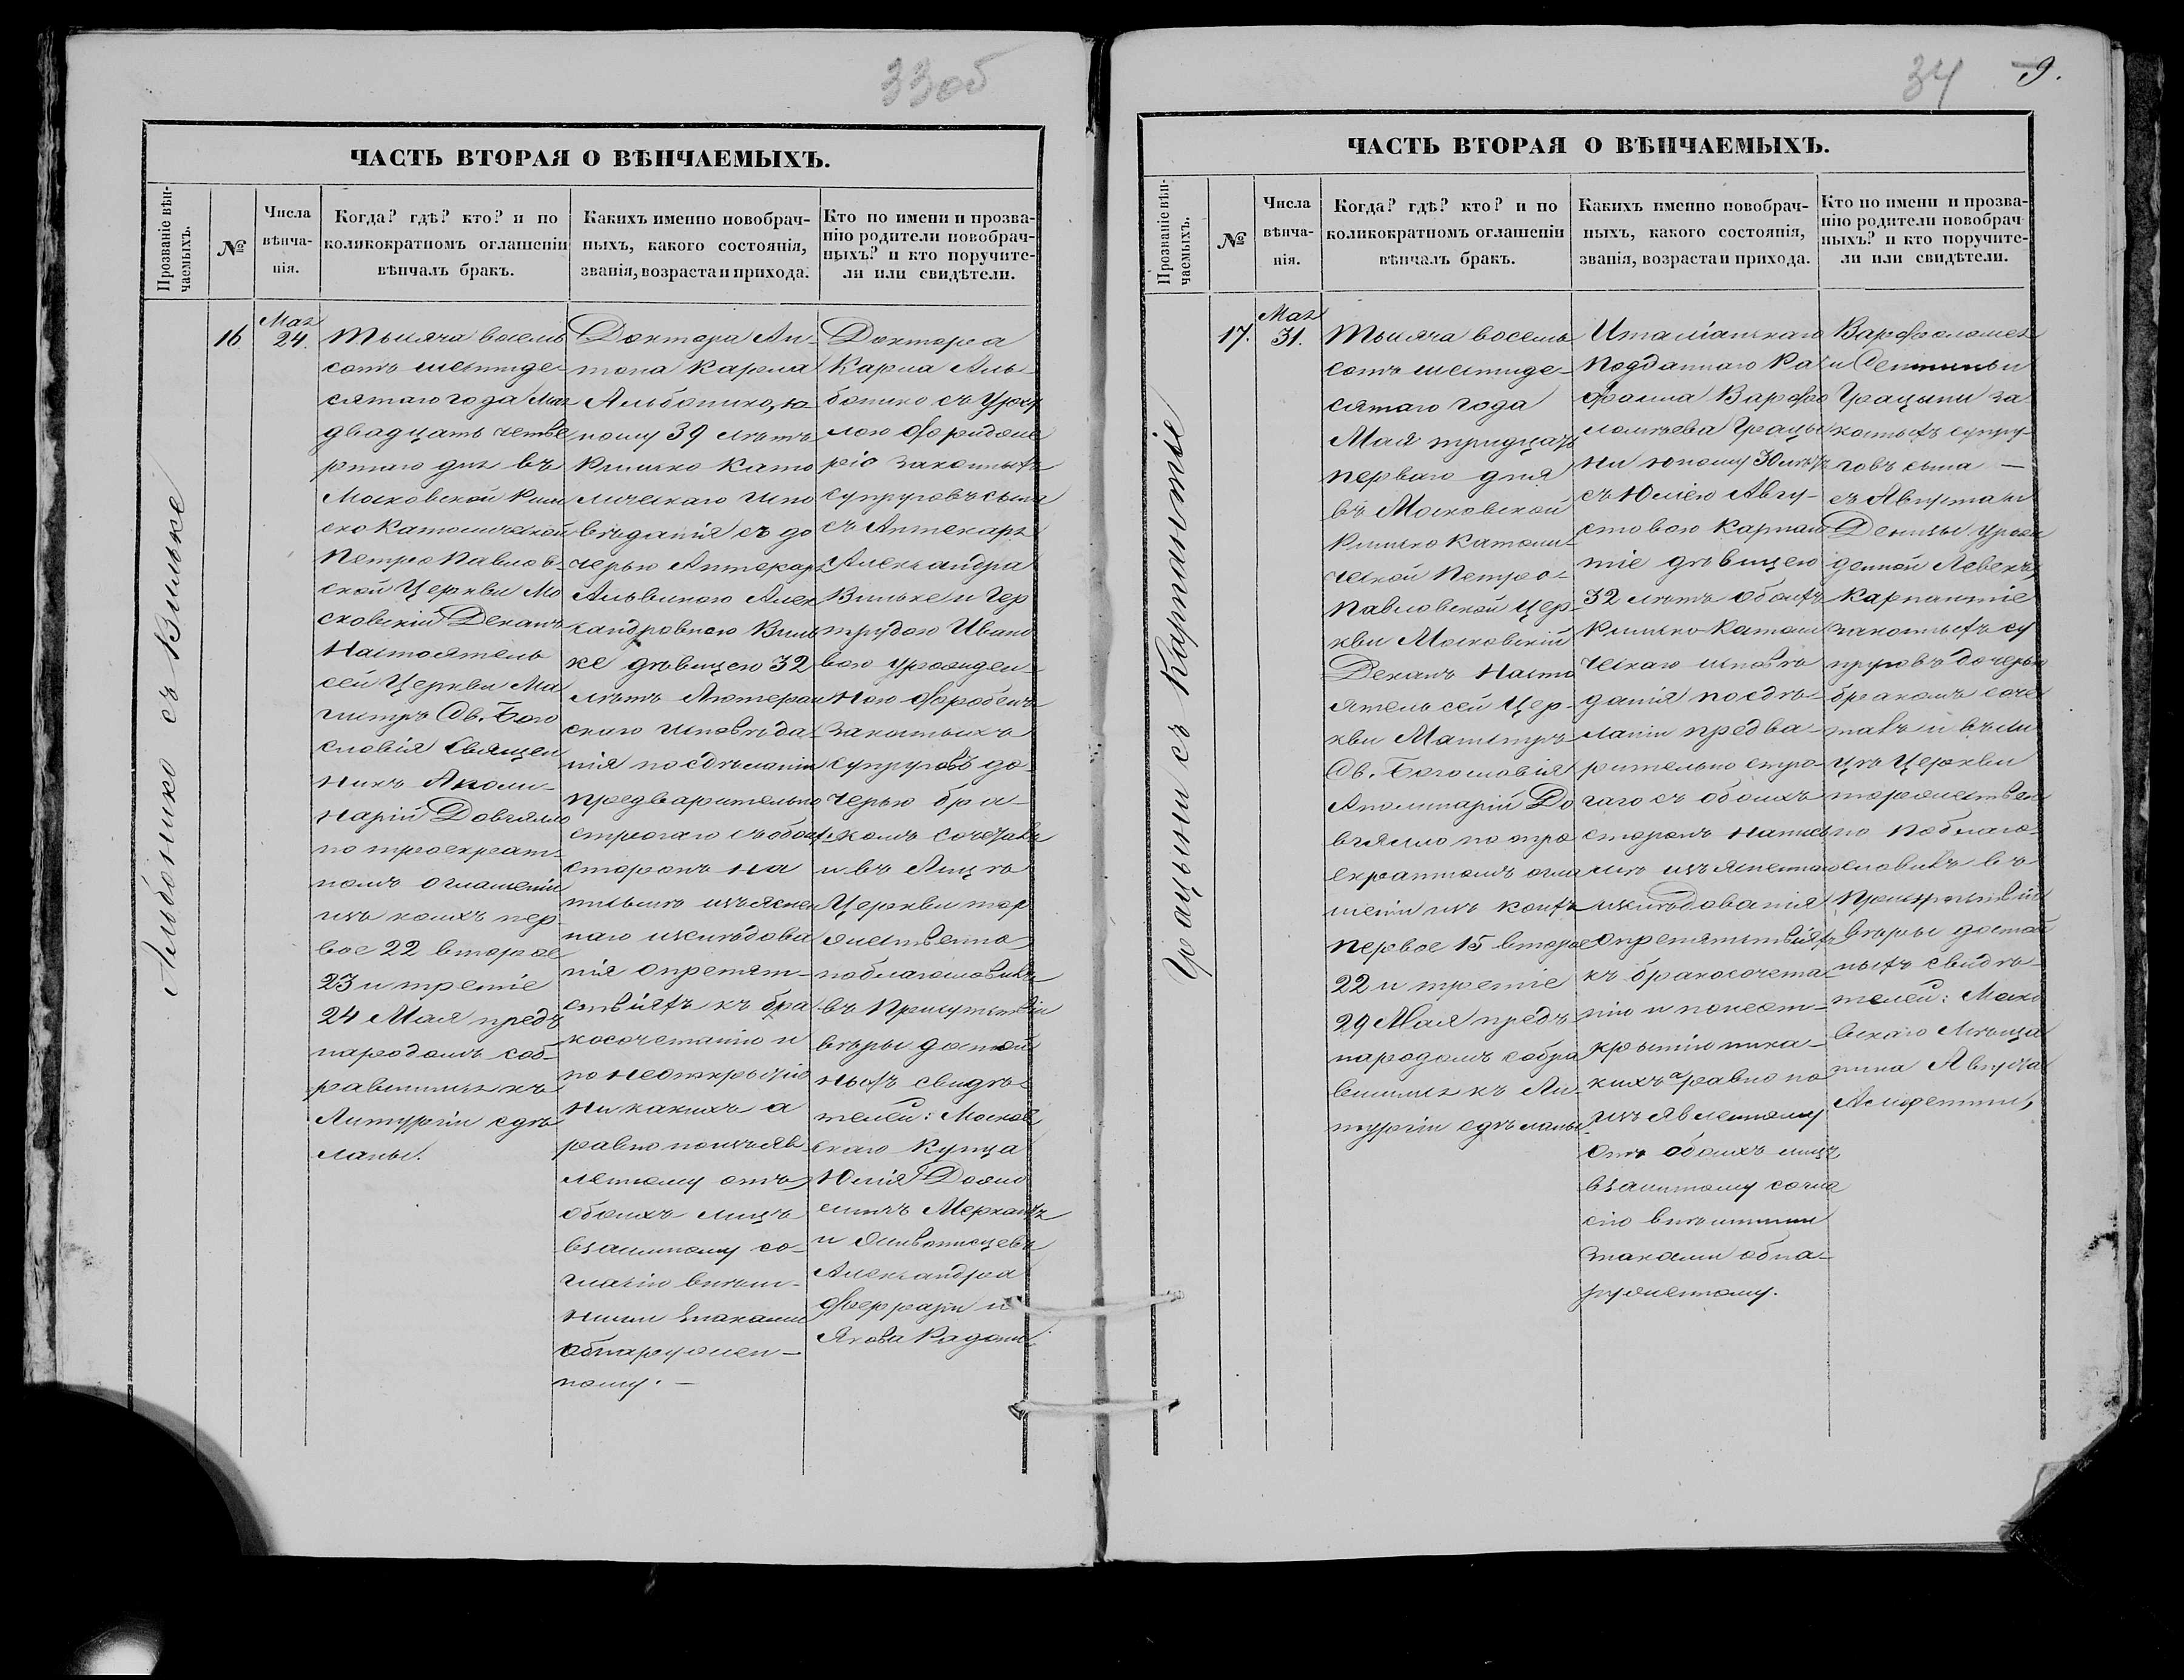 33об
ЧАСТЬ ВТОРАЯ О ВѢНЧАЕМЫХЪ.
Прозваніе вѣн-
чаемыхъ.
№
Числа
вѣнча-
нія.
Когда? гдѣ? кто? и по
колнкократномъ оглашеніи
вѣнчалъ бракъ.
Какихъ именно новобрач-
ныхъ, какого состоянія,
званія, возраста и прихода.
Кто по имени и прозва-
нію родители новобрач-
ныхъ? и кто поручите-
ли или свидѣтели.
Альбонико съ Вильке
16
Мая
24.
Тысяча восемь
сотъ шестиде-
сятаго года Мая
двадцать четве
ртаго дня въ
Московской Рим
ско Католической
Петро Павлов-
ской Церкви Мо
сковскій Деканъ
Настоятель
сей Церкви Ма
гистръ Св. Бого
словія Священ
никъ Аполи-
нарій Довгялло
по троекрат-
номъ оглашеніи
изъ коихъ пер
вое 22 второе
23 и третіе
24 Мая предъ
народомъ соб-
равшимся къ
Литургіи сдѣ
ланы.
Доктора Ан-
тона Карла
Альбонико, ю-
ношу 39 лѣтъ
Римско Като
лическаго Испо
вѣданія съ до
черью Аптекаря
Альвиною Алек
сандровною Виль
ке дѣвицею 32
лѣтъ Лютеран
скаго исповѣда
нія по сдѣланіи
предварительно
строгаго съ обоихъ
сторонъ на
письмѣ изъяснен
наго изслѣдова
нія о препят-
ствіяхъ къ бра
косочетанію и
по неоткрытію
никакихъ а
равно по изъяв
ленному отъ
обоихъ лицъ
взаимному со-
гласію внѣш-
ними знаками
обнаружен-
ному. —
Доктора
Карла Аль-
бонико съ Урожд
законныхъ
супруговъ сына
съ Аптекаря
Александра
Вильке и Гер
трудою Ивано
вою урожден-
ною
законныхъ
супруговъ до-
черью бра-
комъ сочеталъ
и въ Лицѣ
Церкви тор
жественно
поблагословилъ
въ Присутствіи
вѣры достой
ныхъ свидѣ-
телей: Москов
скаго Купца
Юлія
и Живописцевъ
Александра
Феррари и
Якова
34
9.
ЧАСТЬ ВТОРАЯ О ВѢНЧАЕМЫХЪ.
Прозваніе вѣн-
чаемыхъ.
№
Числа
вѣнча-
нія.
Когда? гдѣ? кто? и по
коликократномъ оглашеніи
вѣнчалъ бракъ.
Какихъ именно новобрач-
ныхъ, какого состоянія,
званія, возраста и прихода.
Кто по имени и прозва-
нію родители новобрач-
ныхъ? и кто поручите-
ли или свидѣтели.
Грацыни съ Карпантіе
17.
Мая
31.
Тысяча восемь
сотъ шестиде-
сятаго года
Мая тридцать
перваго дня
въ Московской
Римско Католи
ческой Петро-
Павловской Цер-
кви Московскій
Деканъ Насто
ятель сей Цер-
кви Магистръ
Св. Богословія
Аполинарій До
вгялло по тро
екратномъ огла
шеніи изъ коихъ
первое 15 второе
22 и третіе
29 Мая предъ
народомъ собра
вшимся къ Ли-
тургіи сдѣланы.
Италіанскаго
Подданнаго Ра
фаила Варфо
ломѣева Грацы
ни юношу 30 лѣтъ
съ Юліею Авгу-
стовою Карпан
тіе дѣвицею
32 лѣтъ обоихъ
Римско-Катол
ческаго исповѣ
данія по сдѣ-
ланіи предва-
рительно стро-
гаго съ обоихъ
сторонъ напись
мѣ изъясненнаго
изслѣдованія
о препятствіяхъ
къ бракосочета
нію и по неот-
крытію ника-
кихъ а равно по
изъявленному
отъ обоихъ лицъ
взаимному согла
сію внѣшними
знаками обна-
руженному.
Варфоломея
и
Грацыни за
конныхъ супру-
говъ сына —
съ Августа и
Денизы урож
денной Левекъ,
Карпантіе
законныхъ су
пруговъ дочерью
бракомъ соче
талъ и въ Ли
цѣ Церкви
торжествен
но поблаго-
словилъ въ
Присутствіи
вѣры достой
ныхъ свидѣ-
телей: Моско
вскаго Мѣща
нина Августа